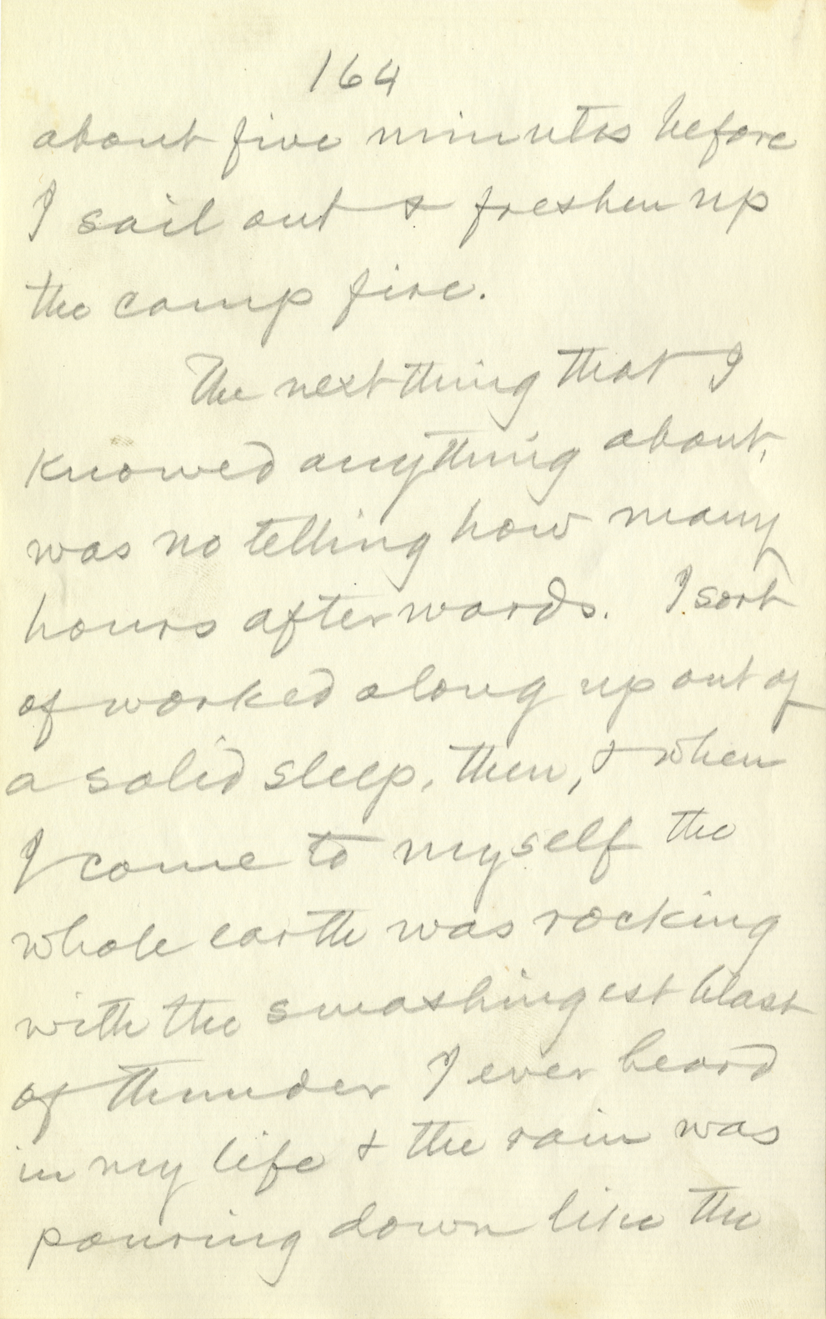 164
about five minutes before
I sail out & freshen up
the camp fire.
The next thing that I
knowed anything about,
was no telling how many
hours afterwards. I sort
of worked along up out of
a solid sleep, then, & when
I come to myself the
whole earth was rocking
with the smashingest blast
of thunder I ever heard
in my life & the rain was
pouring down like the